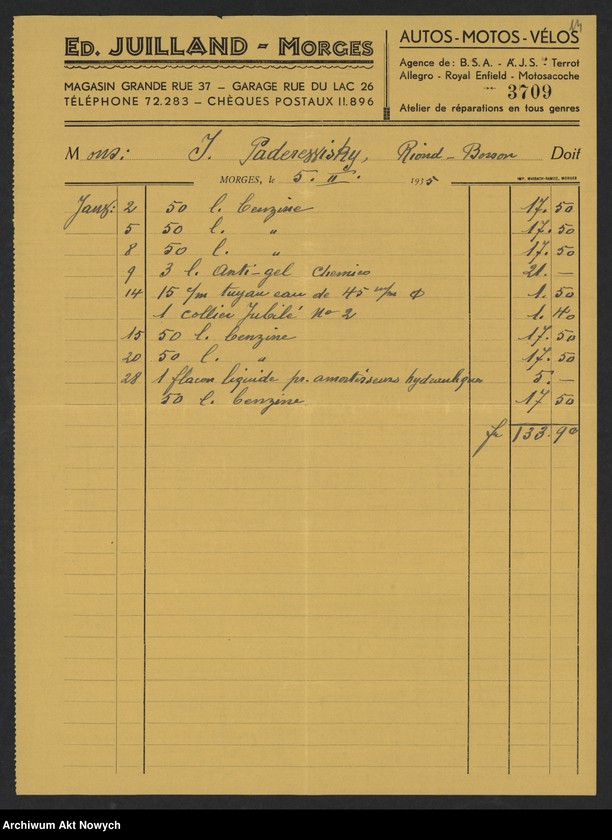 14
ED. JUILLAND - MORGES
MAGASIN GRANDE RUE 37 – GARAGE RUE DU LAC 26
TÉLÉPHONE 72.283 – CHÈQUES POSTAUX II.896
AUTOS - MOTOS - VÉLOS
Agence de: B.S.A. - A.J.S. - Terrot
Allegro - Royal Enfield - Motosacoche
3709
Atelier de réparations en tous genres
Monsi: J. Paderewisky, Riond-Bosson Doit
MORGES, le 5. II. 1935
Janv: 2 50 l. benzine 17.50
5 50 l. " 17.50
8 50 l. " 17.50
9 3 l. Anti-gel Chemico 21.—
14 15 c/m tuyau eau de 45 m/m φ 1.50
1 collier Jubilé No 2 1.40
15 50 l. benzine 17.50
20 50 l. " 17.50
28 1 flacon liquide pr. amortisseurs hydrauliques 5.—
50 l. benzine 17 50
fr 133.90
Archiwum Akt Nowych